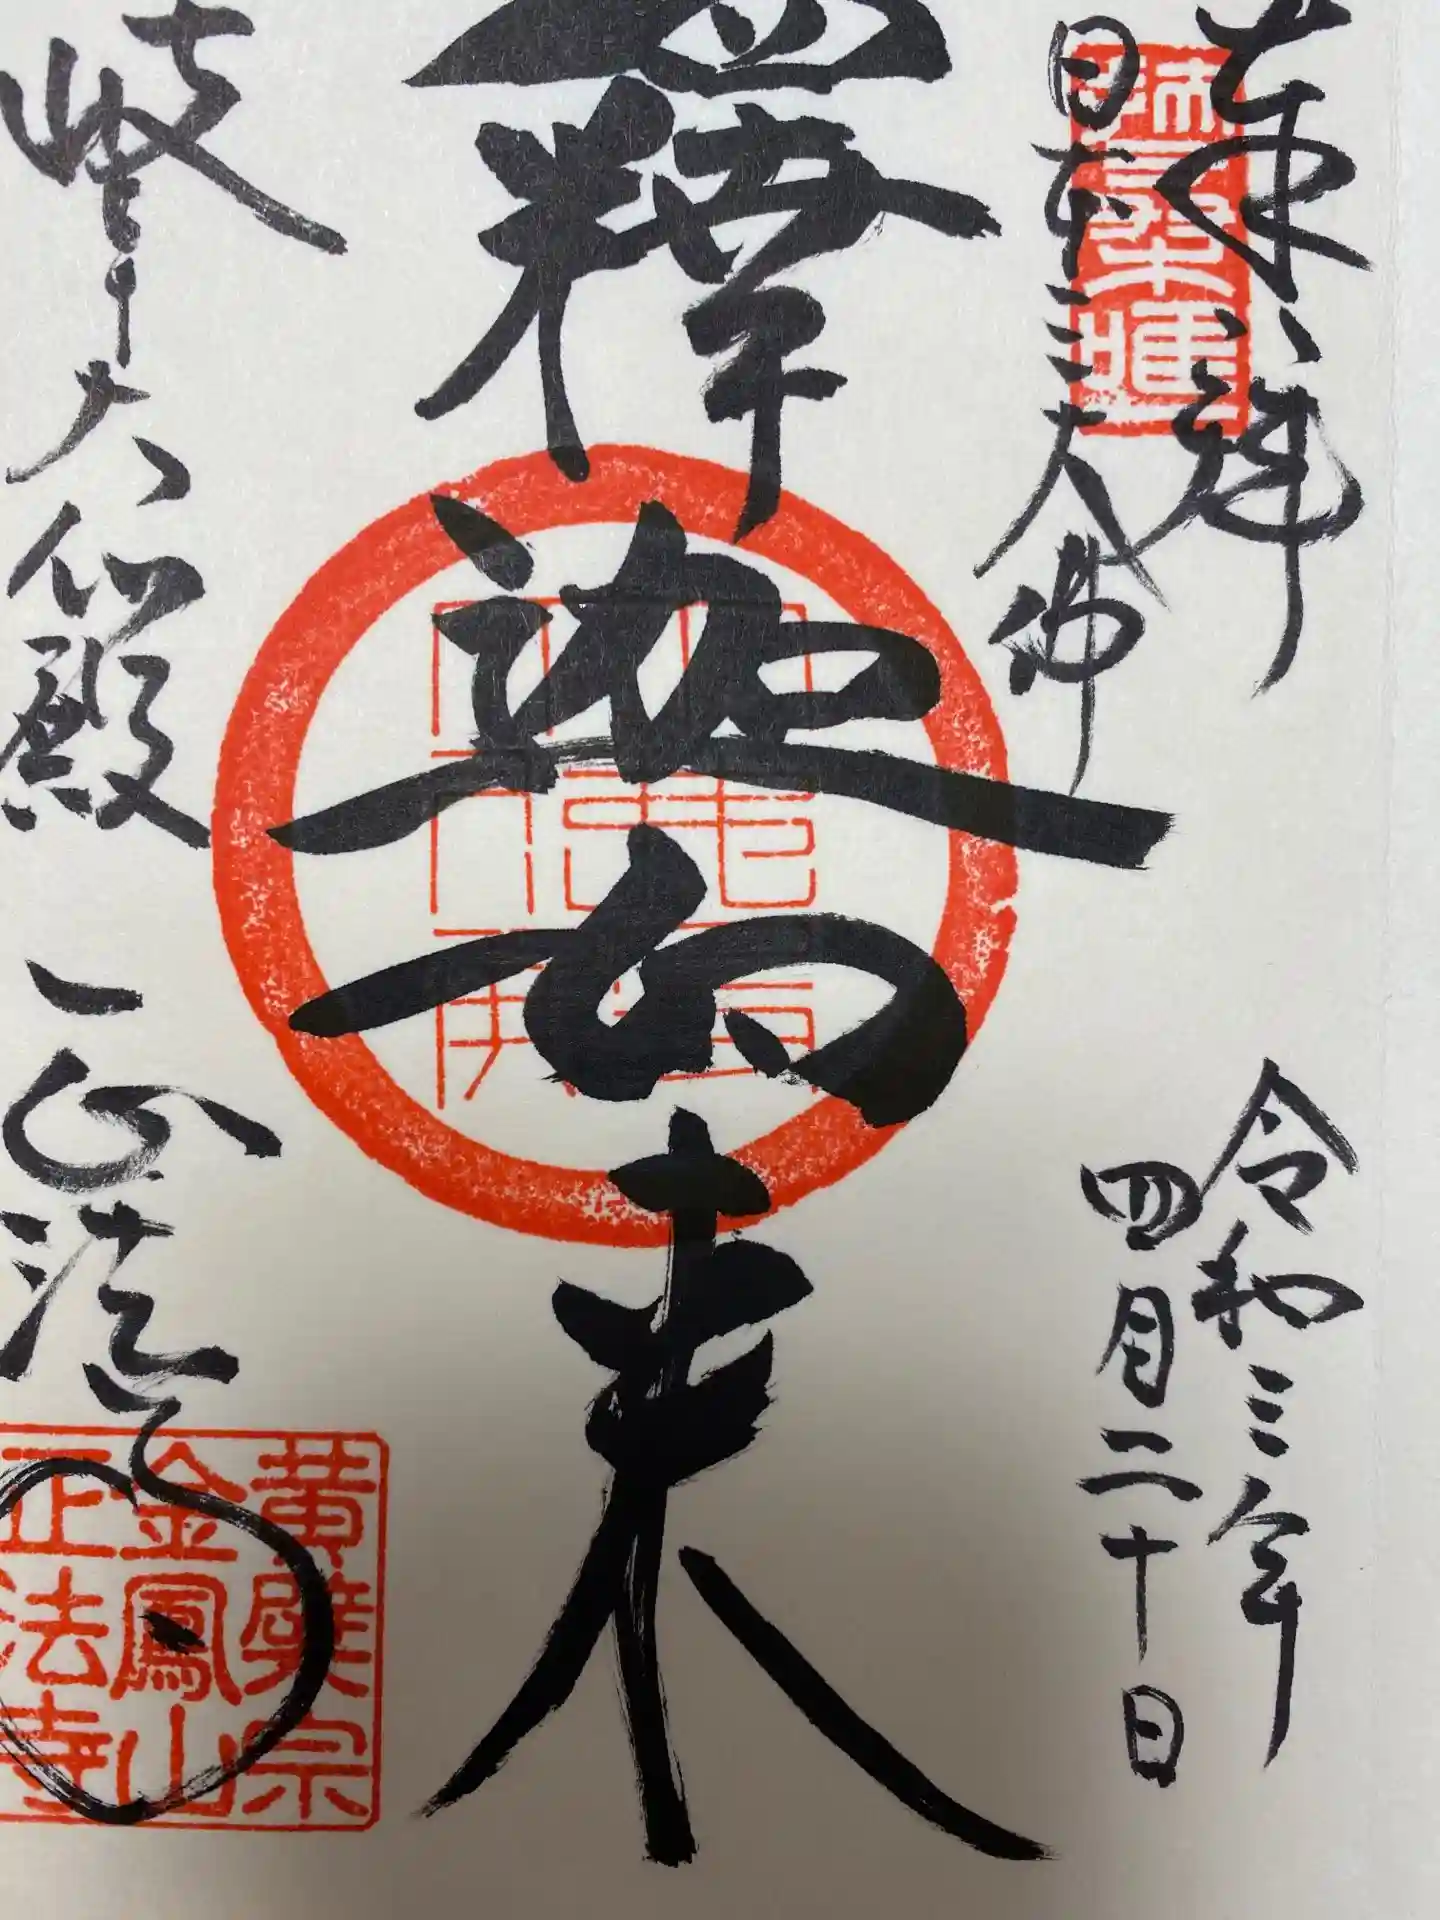 奉拝
日本三大佛
令和三年
四月二十日
釋迦如来
岐阜大仏殿 正法寺
黄檗宗
金鳳山
正法寺